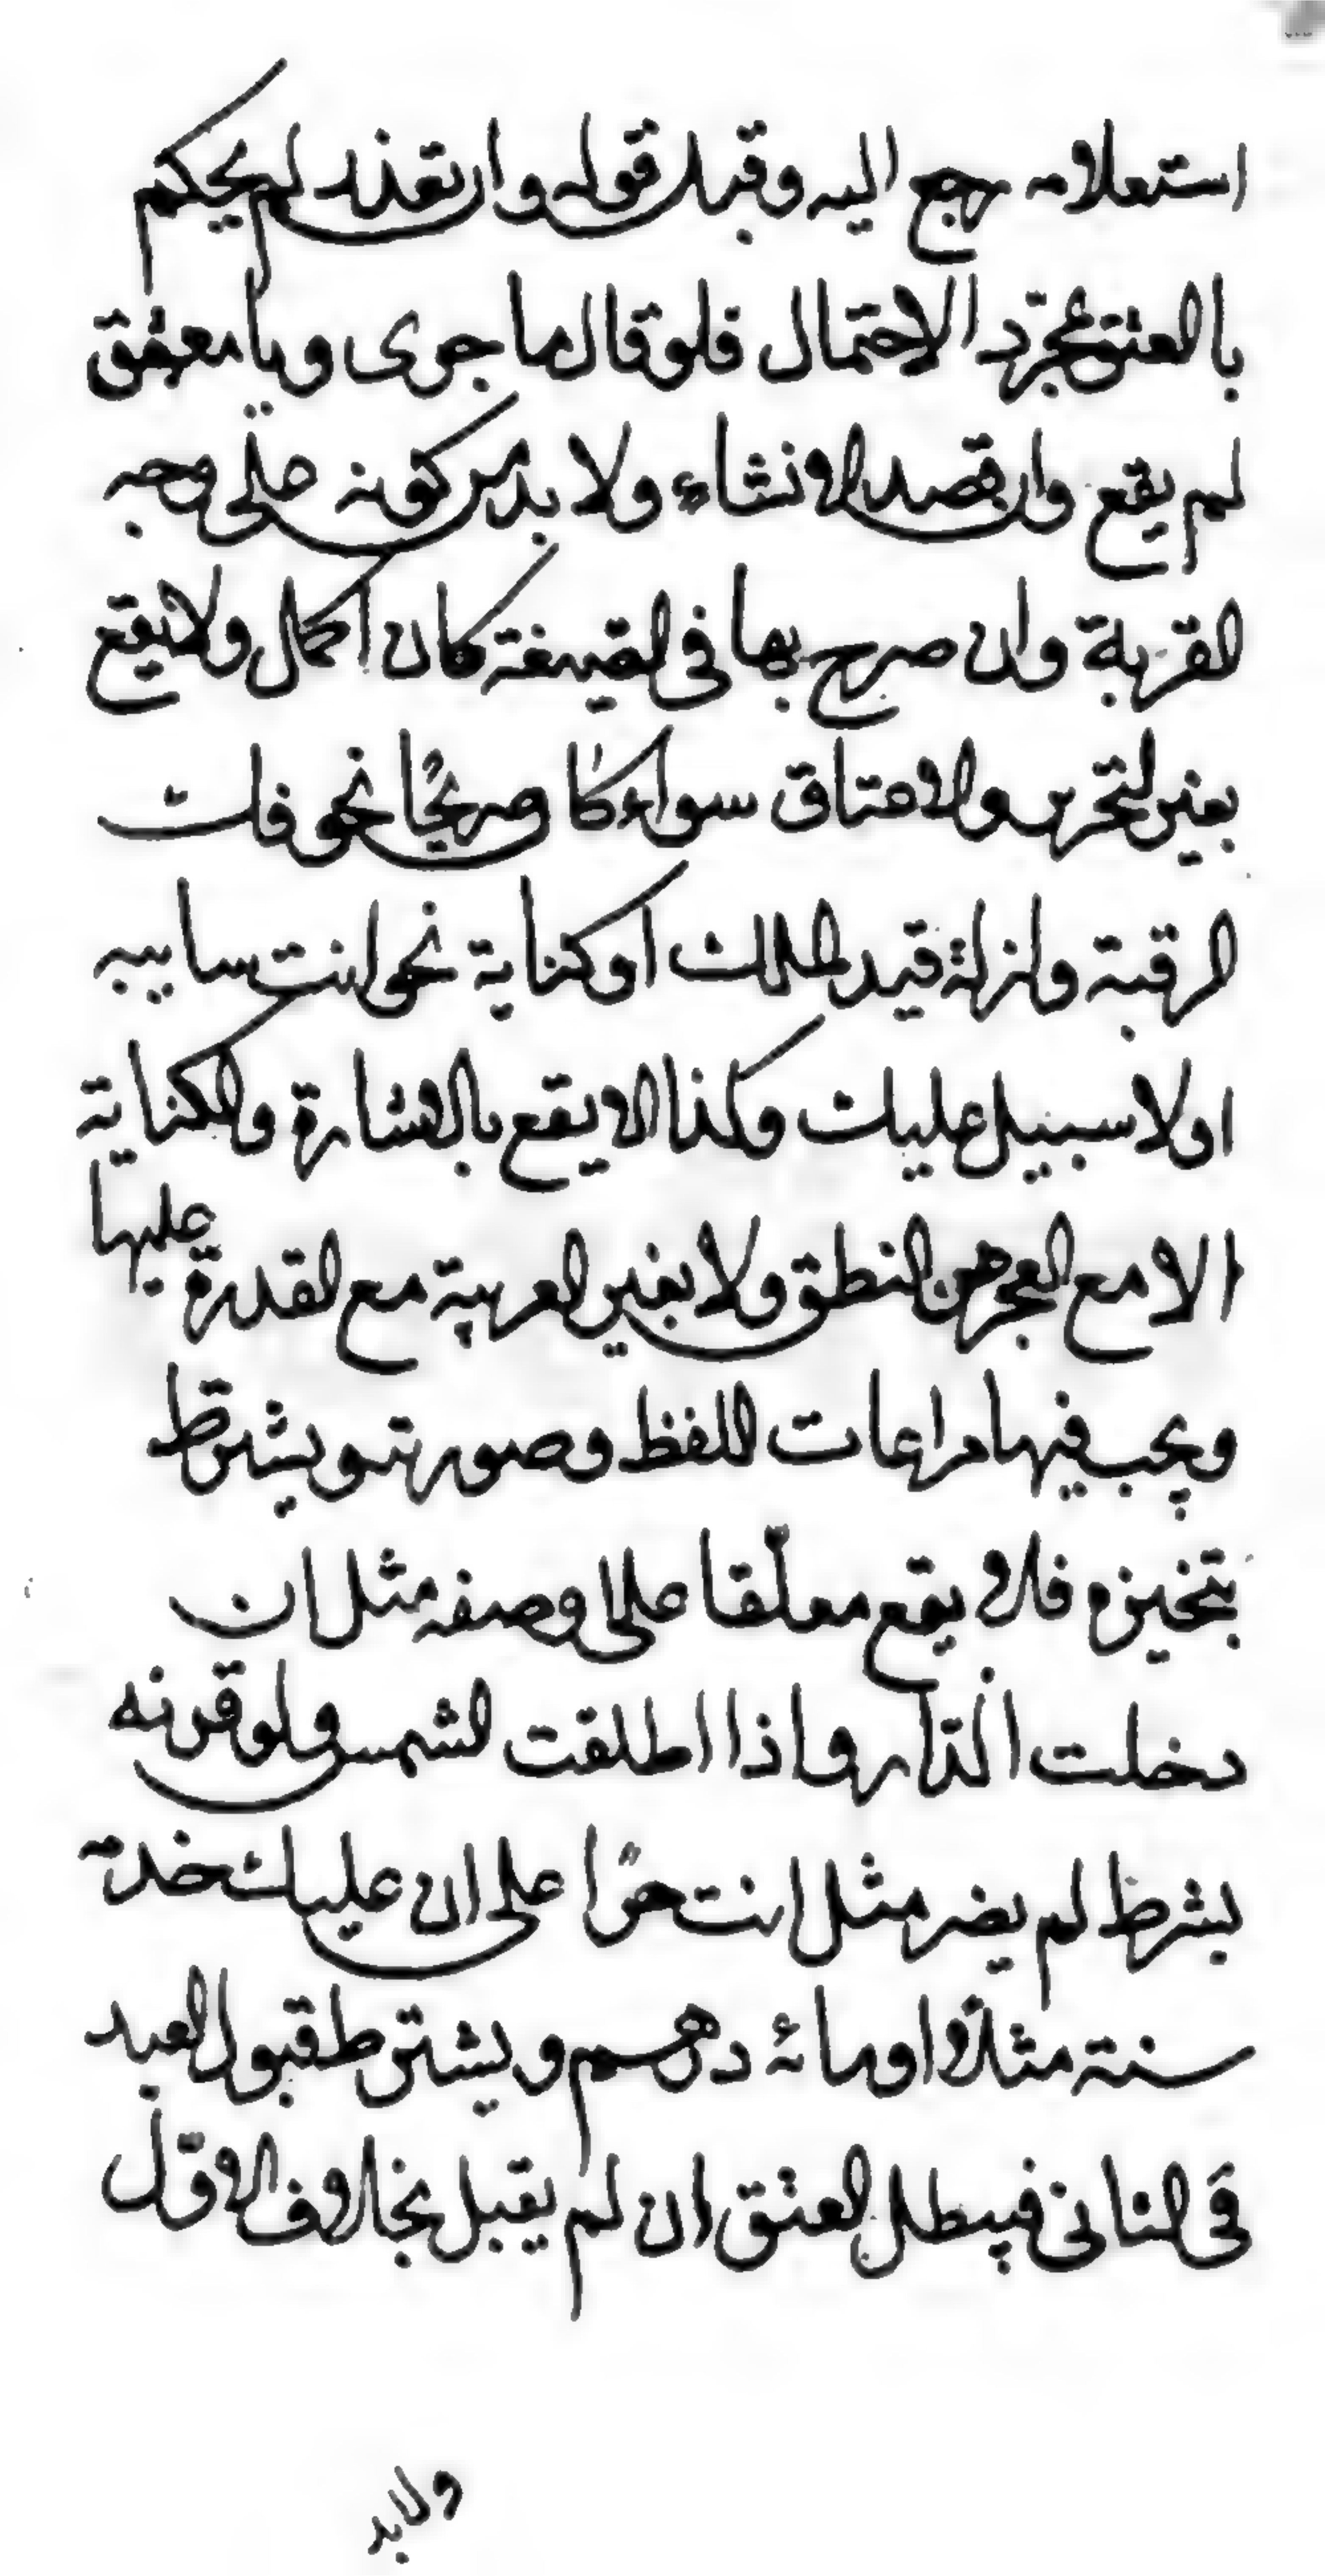 استعلامه رجع اليه وقبل قوله وان تعذر لم يحكم
بالعتق بمجرّد الاحتمال فلو قال ما جوى ويا معتق
لم يقع وان قصد الانشاء ولا بد من كونه على وجه
القربة وان صرح بها فى الصيغة كان اكمل ولا يقع
بغير التحرير والاعتاق سواء كان صريحًا نحو فلت
الرقبة وازلة قيد الملك او كناية نحو انت سايبه
اولا سبيل عليك وكذا لا يقع بالاشارة والكناية
الا مع العجز عن النطق ولا بغير العربية مع القدرة عليها
ويجب فيها مراعات اللفظ وصورته ويشترط
تنجيزه فلا يقع معلّقا على وصفه مثل ان
دخلت الدّار واذا اطلقت الشمس ولو قرنه
بشرط لم يضر مثل انت حرًا على ان عليك خدمة
سنة مثلاً او مائة درهم ويشترط قبول العبد
فى الثانى فيبطل العتق ان لم يقبل بخلاف الاوّل
ولابد